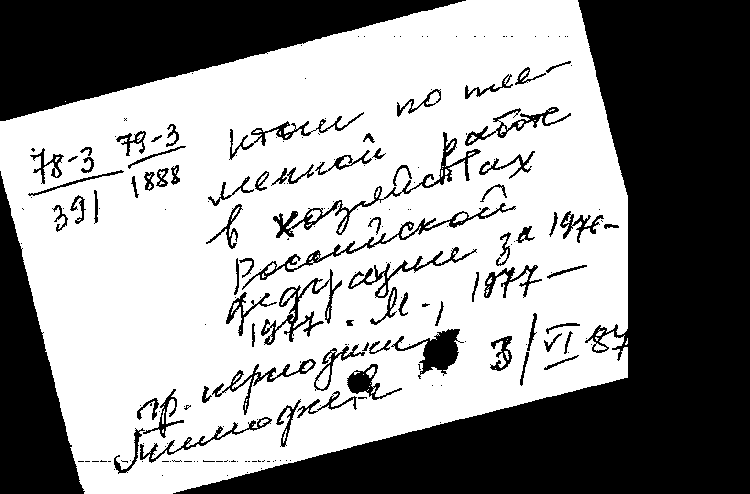 78-3 79-3
391 1888
Итоги по пле-
менной работе
в хозяйствах
Российской
Федерации за 1976-
1977. М., 1977 —
гр. периодики,
Тимофеев 3/VI 87